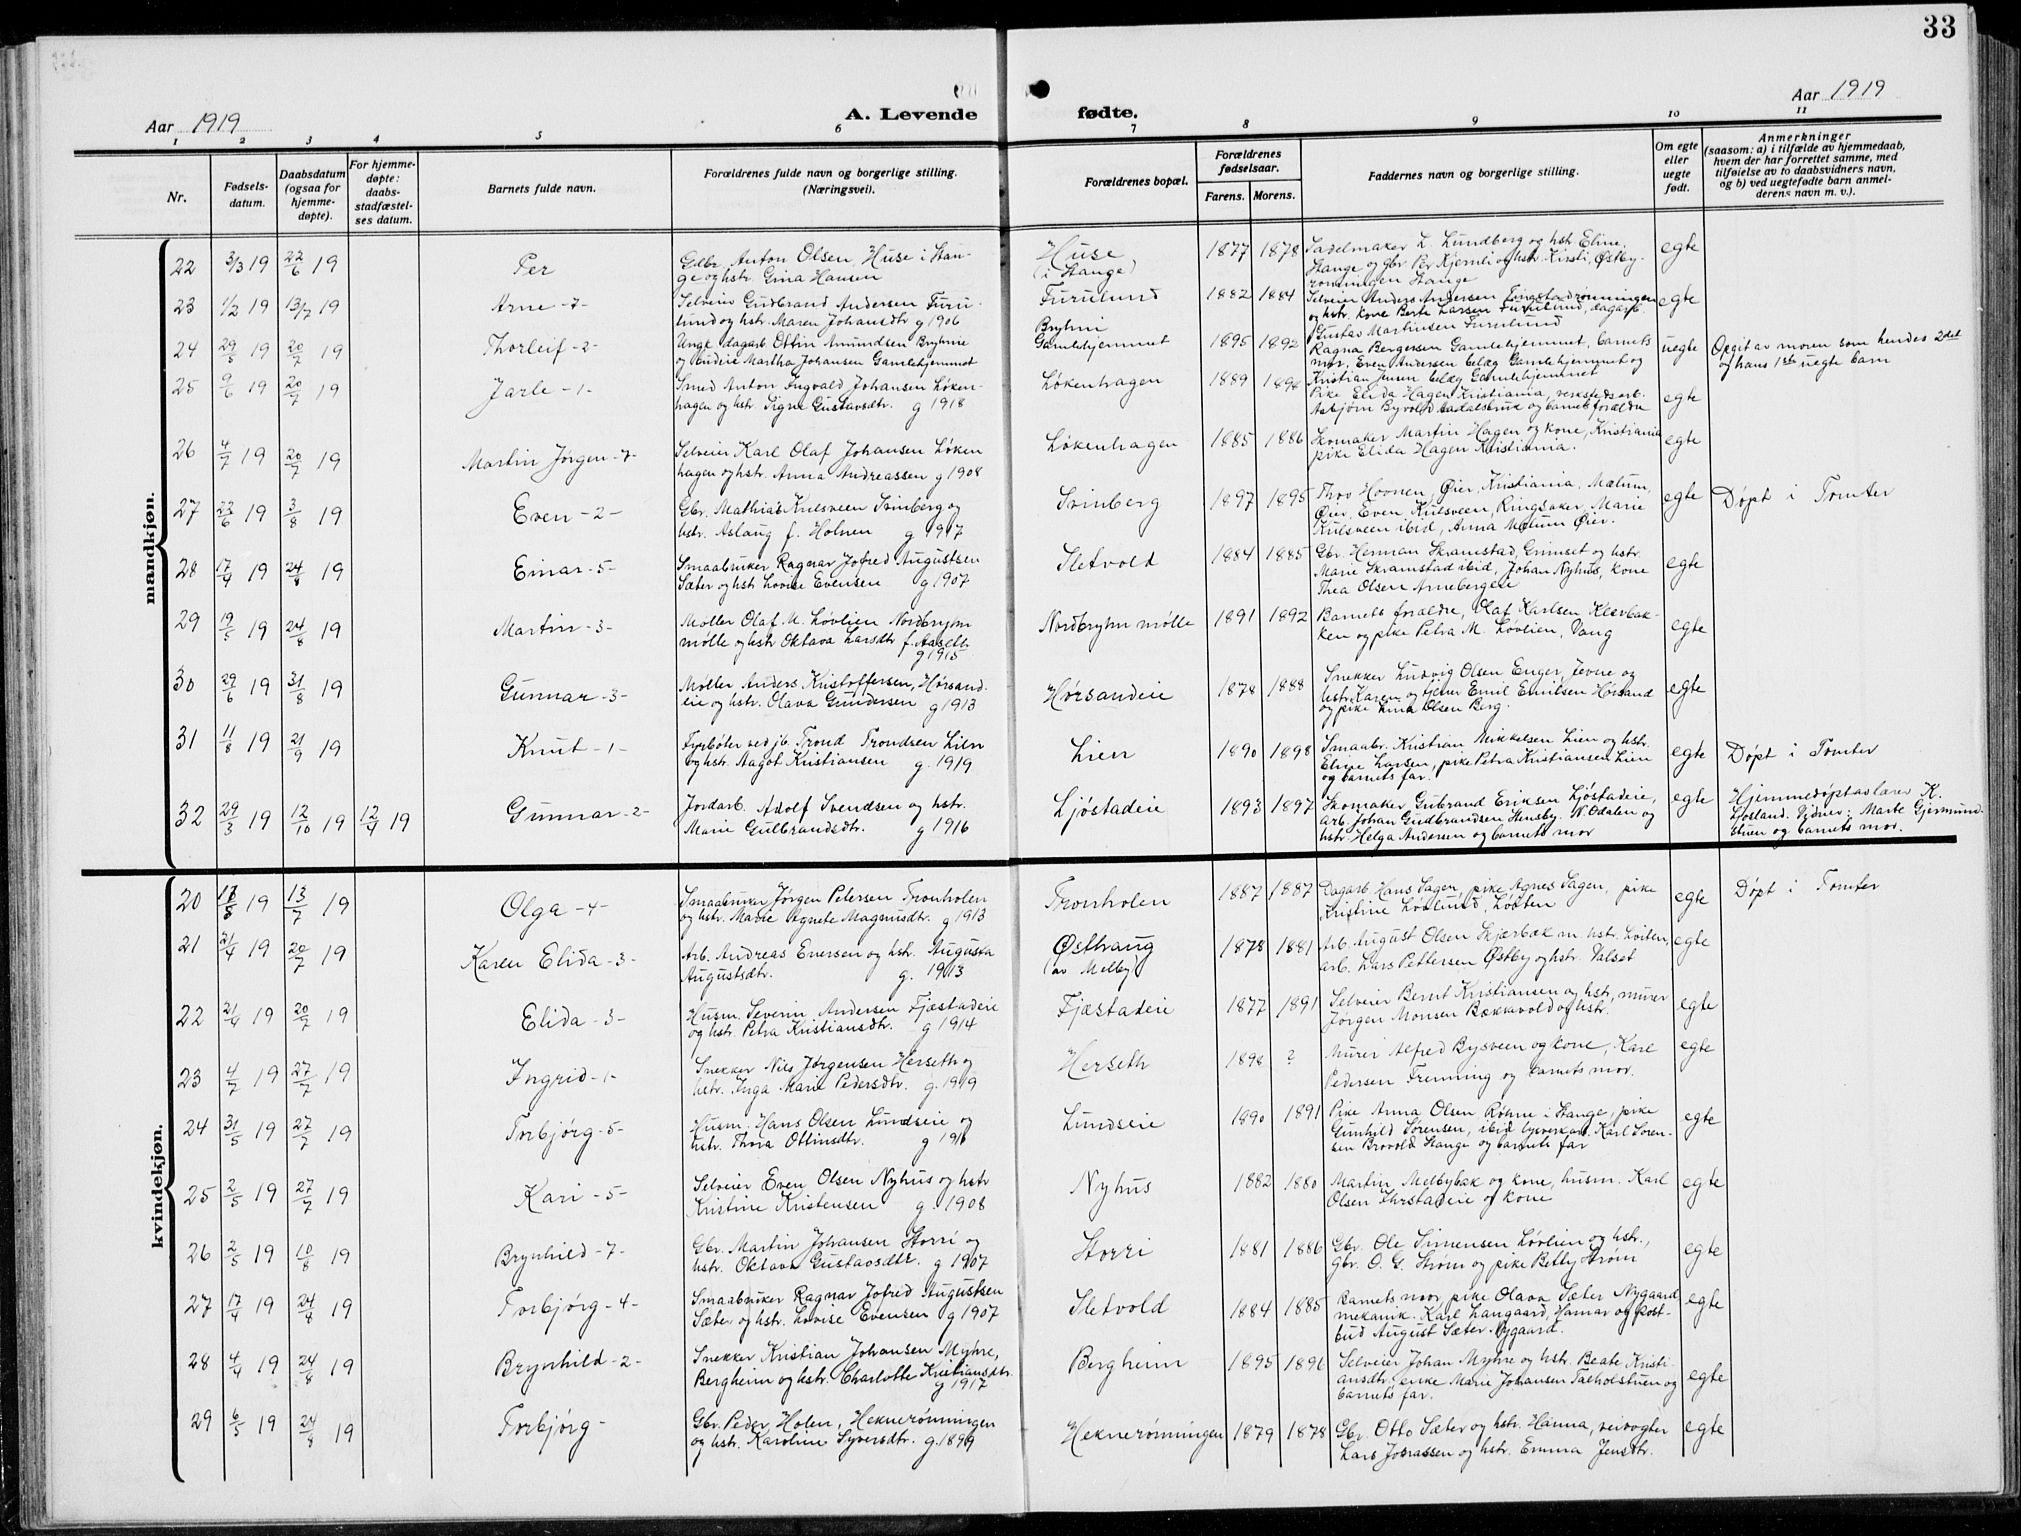 33
Aar 1919
A. Levende
fødte.
Aar 1919
1 2 3 4 5 6 7 8 9 10 11
Nr.
Fødsels-
datum.
Daabsdatum
(ogsaa for
hjemme-
døpte).
For hjemme-
døpte:
daabs-
stadfæstel-
ses datum.
Barnets fulde navn.
Forældrenes fulde navn og borgerlige stilling.
(Næringsvei).
Forældrenes bopæl.
Forældrenes
fødselsaar.
Farens. Morens.
Faddernes navn og borgerlige stilling.
Om egte
eller
uegte
født.
Anmerkninger
(saasom: a) i tilfælde av hjemmedaab,
hvem der har forrettet samme, med
tilføielse av to daabsvidners navn,
og b) ved uegtefødte barn anmel-
derens navn m. v.).
mandkjøn.
22 3/3 19 22/6 19 Per
Gbr. Anton Olsen Huse i Stan-
ge og hstr. Gina Hansen
Huse
(i Stange)
1877 1878
Sadelmaker L. Lundberg og hstr Eline,
Stange og gbr. Per Kjernli og hstr. Kirsti, Østby-
rønningen Stange
egte
23 1/2 19 13/7 19 Arne -7-
Selveier Gudbrand Andersen Furu-
lund og hstr. Maren Johansdtr g 1906
Furulund
1882 1884
Selveier Anders Andersen Ringstadrønningen
og hstr. kone Berte Larsen Furulund, dagarb.
Gustav Martinsen Furulund
egte
24 29/5 19 20/7 19 Thorleif -2-
Unge dagarb. Ottin Amundsen Bryhni
og budeie Martha Johansen Gamlehjemmet
Bryhni
Gamlehjemmet
1895 1892
Ragna Bergersen Gamlehjemmet, barnets
mor, Even Andersen belæg Gamlehjemmet og
Kristian Jensen belæg Gamlehjemmet
uegte
Opgit av moren som hendes 2det
og hans 1ste uegte barn
25 9/6 19 20/7 19 Jarle -1-
Smed Anton Ingvald Johansen Løken-
hagen og hstr. Signe Gustavsdtr. g 1918
Løkenhagen
1889 1894
Pike Elida Hagen Kristiania, verkstedsarb.
Asbjørn Byvold Aadalsbruk og barnets forældre
egte
26 4/7 19 20/7 19 Martin Jørgen -7-
Selveier Karl Olaf Johansen Løken
hagen og hstr. Anna Andreassen g 1908
Løkenhagen
1885 1886
Skomaker Martin Hagen og kone, Kristiania
pike Elida Hagen Kristiania.
egte
27 22/6 19 3/8 19 Even -2-
Gbr. Mathias Kulsveen Svinberg og
hstr. Aslaug f. Holmen g 1917
Svinberg
1897 1895
Thov Hoonen, Øier, Kristiania, Mælum,
Øier, Even Kulsveen, Ringsaker, Marie
Kulsveen ibid, Anna Mælum Øier.
egte
Døpt i Tomter
28 17/4 19 24/8 19 Einar -5-
Smaabruker Ragnar Jofred Augustsen
Sæter og hstr Lovise Evensen g 1907
Sletvold
1884 1885
Gbr. Herman Skramstad, Grimset og hstr.
Marie Skramstad ibid, Johan Nyhus, kone
Thea Olsen Arnebergeie
egte
29 19/5 19 24/8 19 Martin -3-
Møller Olaf M. Løvlien Nordbryhn
mølle og hstr Oktava Larsdtr f. Aaseth
g 1915
Nordbryhn mølle
1891 1892
Barnets forældre, Olaf Karlsen Kløvbak-
ken og pike Petra M. Løvlien, Vang
egte
30 29/6 19 31/8 19 Gunnar -3-
Møller Anders Kristoffersen, Hørsand-
eie og hstr. Olava Gundersen g 1913
Hørsandeie
1878 1888
Snekker Ludvig Olsen Enger, Jevne og
hstr. Karen og tjener Emil Emilsen Hørsand
og pike Lina Olsen Berg.
egte
31 11/8 19 21/9 19 Knut -1-
Fyrbøter ved jb. Trond Trondsen Lien
og hstr. Aagot Kristiansen g. 1919
Lien
1890 1898
Smaabr. Kristian Mikkelsen Lien og hstr.
Eline Larsen, pike Petra Kristiansen Lien
og barnets far.
egte
Døpt i Tomter
32 29/3 19 12/10 19 12/4 19 Gunnar -2-
Jordarb. Adolf Svendsen og hstr.
Marie Gulbrandsdtr. g 1916
Ljøstadeie
1893 1897
Skomaker Gubrand Eriksen Ljøstadeie,
arb. Johan Gudbrandsen Hensby. N. Odalen og
hstr. Helga Andersen og barnets mor
egte
Hjemmedøpt av lærer K.
Ljosland. Vidner: Marte Gjermund-
stuen og barnets mor.
kvindekjøn.
20 18/5 19 13/7 19 Olga -4-
Smaabruker Jørgen Petersen Tronholen
og hstr. Marie Agnete Magnusdtr. g 1913
Tronholen
1887 1887
Dagarb. Hans Sagen, pike Agnes Sagen, pike
Kristine Løvlund, Løiten
egte
Døpt i Tomter
21 21/4 19 20/7 19 Karen Elida -3-
Arb. Andreas Enersen og hstr. Augusta
Augustsdtr. g. 1913
Østhaug
(av Melby)
1878 1881
Arb. August Olsen Skjærbæk m hstr. Løiten,
arb. Lars Pettersen Østby og hstr. Valset
egte
22 21/4 19 20/7 19 Elida -3-
Husm. Severin Andersen Fjæstadeie
og hstr. Petra Kristiansdtr. g 1914
Fjæstadeie
1877 1891
Selveier Bernt Kristiansen og hstr, murer
Jørgen Monsen Bækkevold og hstr.
egte
23 4/7 19 27/7 19 Ingrid -1-
Snekker Nils Jørgensen Herseth og
hstr. Inga Marie Pedersdtr. g 1919
Herseth
1898 ?
Murer Alfred Bysveen og kone, Karl
Pedersen Frenning og barnets mor.
egte
24 31/5 19 27/7 19 Torbjørg -5-
Husm. Hans Olsen Lundseie og
hstr. Thora Ottinsdtr. g 191
Lundseie
1890 1891
Pike Anna Olsen Røhne i Stange, pike
Gunhild Sørensen, ibid lysverksarb. Karl Søren-
sen Brovold Stange og barnets far
egte
25 2/5 19 27/7 19 Kari -5-
Selveier Even Olsen Nyhus og hstr
Kristine Kristensen g. 1908
Nyhus
1882 1880
Martin Melbybak og kone, husm. Karl
Olsen Ihrstadeie og kone
egte
26 2/5 19 10/8 19 Brynhild -7-
Gbr. Martin Johansen Storri og
hstr. Oktava Gustavsdtr. g 1907
Storri
1881 1886
Gbr. Ole Simensen Løvlien og hstr.,
gbr. O. G. Strøm og pike Betty Strøm
egte
27 17/4 19 24/8 19 Torbjørg -4-
Smaabruker Ragnar Jofred Augustsen
Sæter og hstr. Lovise Evensen g 1907
Sletvold
1884 1885
Barnets mor, pike Olava Sæter Nygaard,
mekanik. Karl Langaard, Hamar og post-
bud August Sæter Nygaard.
egte
28 4/4 19 24/8 19 Brynhild -2-
Snekker Kristian Johansen Myhre,
Bergheim og hstr. Charlotte Kristiansdtr.
g 1917
Bergheim
1895 1896
Selveier Johan Myhre og hstr. Beate Kristi-
ansdtr. enke Marie Johansen Talholstuen og
barnets far.
egte
29 6/5 19 24/8 19 Torbjørg -
Gbr. Peder Holen, Heknerønningen
og hstr. Karoline Syversdtr. g. 1899
Heknerønningen
1879 1878
Gbr. Otto Sæter og hstr. Hanna, veivogter
Lars Jonassen og hstr. Emma Jensdtr.
egte